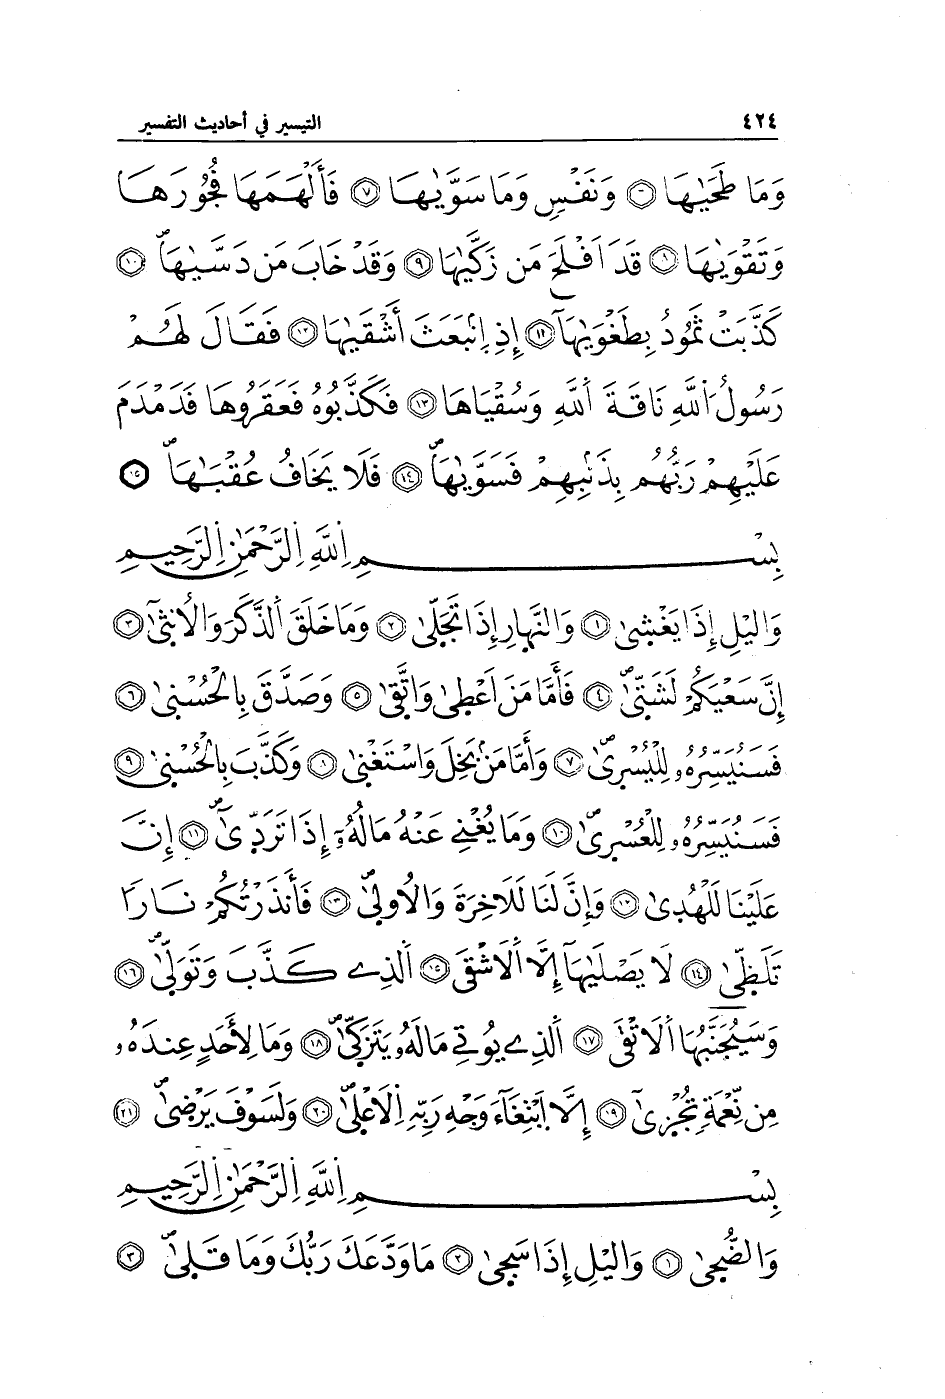 ٤٢٤ التيسير في أحاديث التفسير
وَمَا طَحَىٰهَا ٦ وَنَفْسٍ وَمَا سَوَّىٰهَا ٧ فَأَلْهَمَهَا فُجُورَهَا
وَتَقْوَىٰهَا ٨ قَدَ اَفْلَحَ مَن زَكَّىٰهَا ٩ وَقَدْ خَابَ مَن دَسَّىٰهَا ١٠
كَذَّبَتْ ثَمُودُ بِطَغْوَىٰهَآ ١١ إِذِ اِنۢبَعَثَ أَشْقَىٰهَا ١٢ فَقَالَ لَهُمْ
رَسُولُ اُللَّهِ نَاقَةَ اَللَّهِ وَسُقْيَاهَا ١٣ فَكَذَّبُوهُ فَعَقَرُوهَا فَدَمْدَمَ
عَلَيْهِمْ رَبُّهُم بِذَنۢبِهِمْ فَسَوَّىٰهَا ١٤ فَلَا يَخَافُ عُقْبَٰهَا ١٥
بِسْمِ اِللَّهِ اِلرَّحْمَٰنِ اِلرَّحِيمِ
وَاليْلِ إِذَا يَغْشىٰ ١ وَالنَّهارِ إِذَا تَجَلّىٰ ٢ وَمَا خَلَقَ اَلذَّكَرَ وَالُانثىٰٓ ٣
إِنَّ سَعْيَكُمْ لَشَتّىٰ ٤ فَأَمَّا مَنَ اَعْطىٰ وَاتَّقىٰ ٥ وَصَدَّقَ بِالْحُسْنىٰ ٦
فَسَنُيَسِّرُهُۥ لِلْيُسْرىٰ ٧ وَأَمَّا مَنۢ بَخِلَ وَاسْتَغْنىٰ ٨ وَكَذَّبَ بِالْحُسْنىٰ ٩
فَسَنُيَسِّرُهُۥ لِلْعُسْرىٰ ١٠ وَمَا يُغْنِے عَنْهُ مَالُهُۥٓ إِذَا تَرَدّىٰٓ ١١ إِنَّ
عَلَيْنَا لَلْهُدىٰ ١٢ وَإِنَّ لَنَا لَلَاخِرَةَ وَالُاولىٰ ١٣ فَأَنذَرْتُكُمْ نَاراً
تَلَظّىٰ ١٤ لَا يَصْلَىٰهَآ إِلَّا اَلَاشْقَى ١٥ اَلذِے كَذَّبَ وَتَوَلّىٰ ١٦
وَسَيُجَنَّبُهَا اَلَاتْقَى ١٧ اَلذِے يُوتِے مَالَهُۥ يَتَزَكّىٰ ١٨ وَمَا لِأَحَدٍ عِندَهُۥ
مِن نِّعْمَةٍ تُجْزىٰٓ ١٩ إِلَّا اَبْتِغَآءَ وَجْهِ رَبِّهِ اِلَاعْلىٰ ٢٠ وَلَسَوْفَ يَرْضىٰ ٢١
بِسْمِ اِللَّهِ اِلرَّحْمَٰنِ اِلرَّحِيمِ
وَالضُّحىٰ ١ وَاليْلِ إِذَا سَجىٰ ٢ مَا وَدَّعَكَ رَبُّكَ وَمَا قَلىٰ ٣